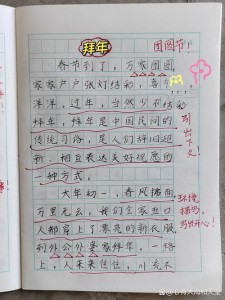 拜年
团圆节！
春节到了，万家团圆
家家户户张灯结彩，喜气
洋洋，过年，当然少不了
拜年，拜年是中国民间的
传统习俗，是人们辞旧迎
新、相互表达美好祝愿的
一种方式。
引出下文！
大年初一，春风拂面
万里无云，我们全家五口
人都穿上了崭新的衣服
到外公外婆家拜年。一路
上，人来来往往，川流不
环境描写，